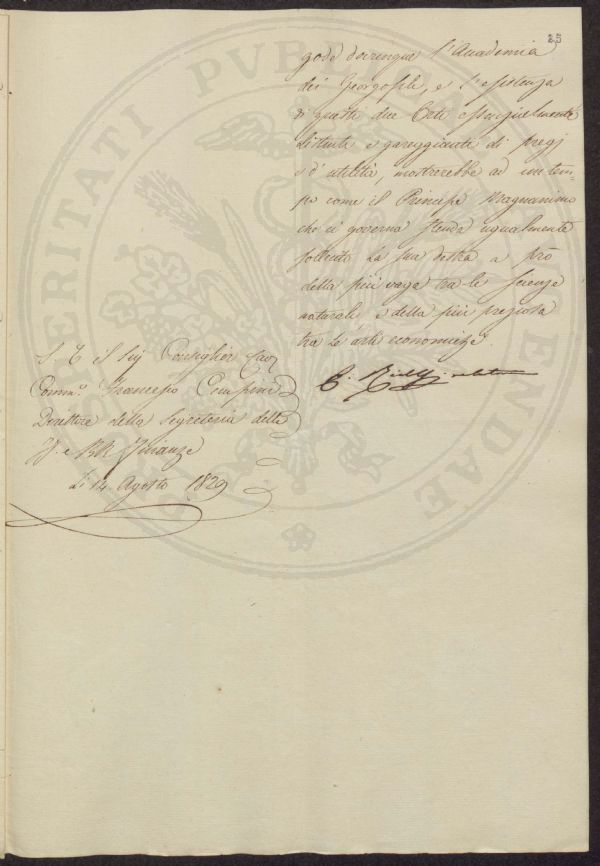 25
gode dovrenque l'Accademia
dei Georgofili, e l'esistenza
di questi due Enti essenzialmente
distinti e gareggianti di pregj
e d'utilità, mostrerebbe ad un tem-
po come il Principe Magnanimo
che ci governa stenda ugualmente
la sua destra a prò
della più vaga tra le scienze
naturali e della più preziosa
tra le arti economiche.
S. E. Il Sig. Consiglier Cav.
Comm.º Francesco Cempini
Direttore della Segreteria delle
I. e RR. Finanze
Li 14 Agosto 1829
POSTERITATI PVBLICAE ENDAE